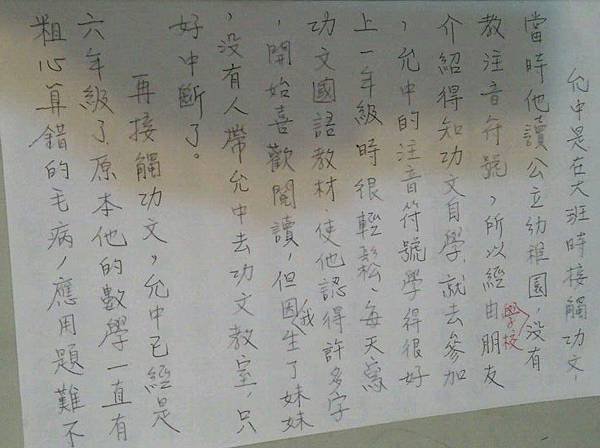 允中是在大班時接觸功文,
當時他讀公立幼稚園,沒有
教注音符號,所以經由學校朋友
介紹得知功文自學.就去參加
,允中的注音符號學得很好
上一年級時很輕鬆、每天寫
功文國語教材.使他認得許多字
,開始喜歡閱讀,但因我生了妹妹
,沒有人帶允中去功文教室,只
好中斷了。
再接觸功文,允中已經是
六年級了.原本他的數學一直有
粗心算錯的毛病,應用題難不